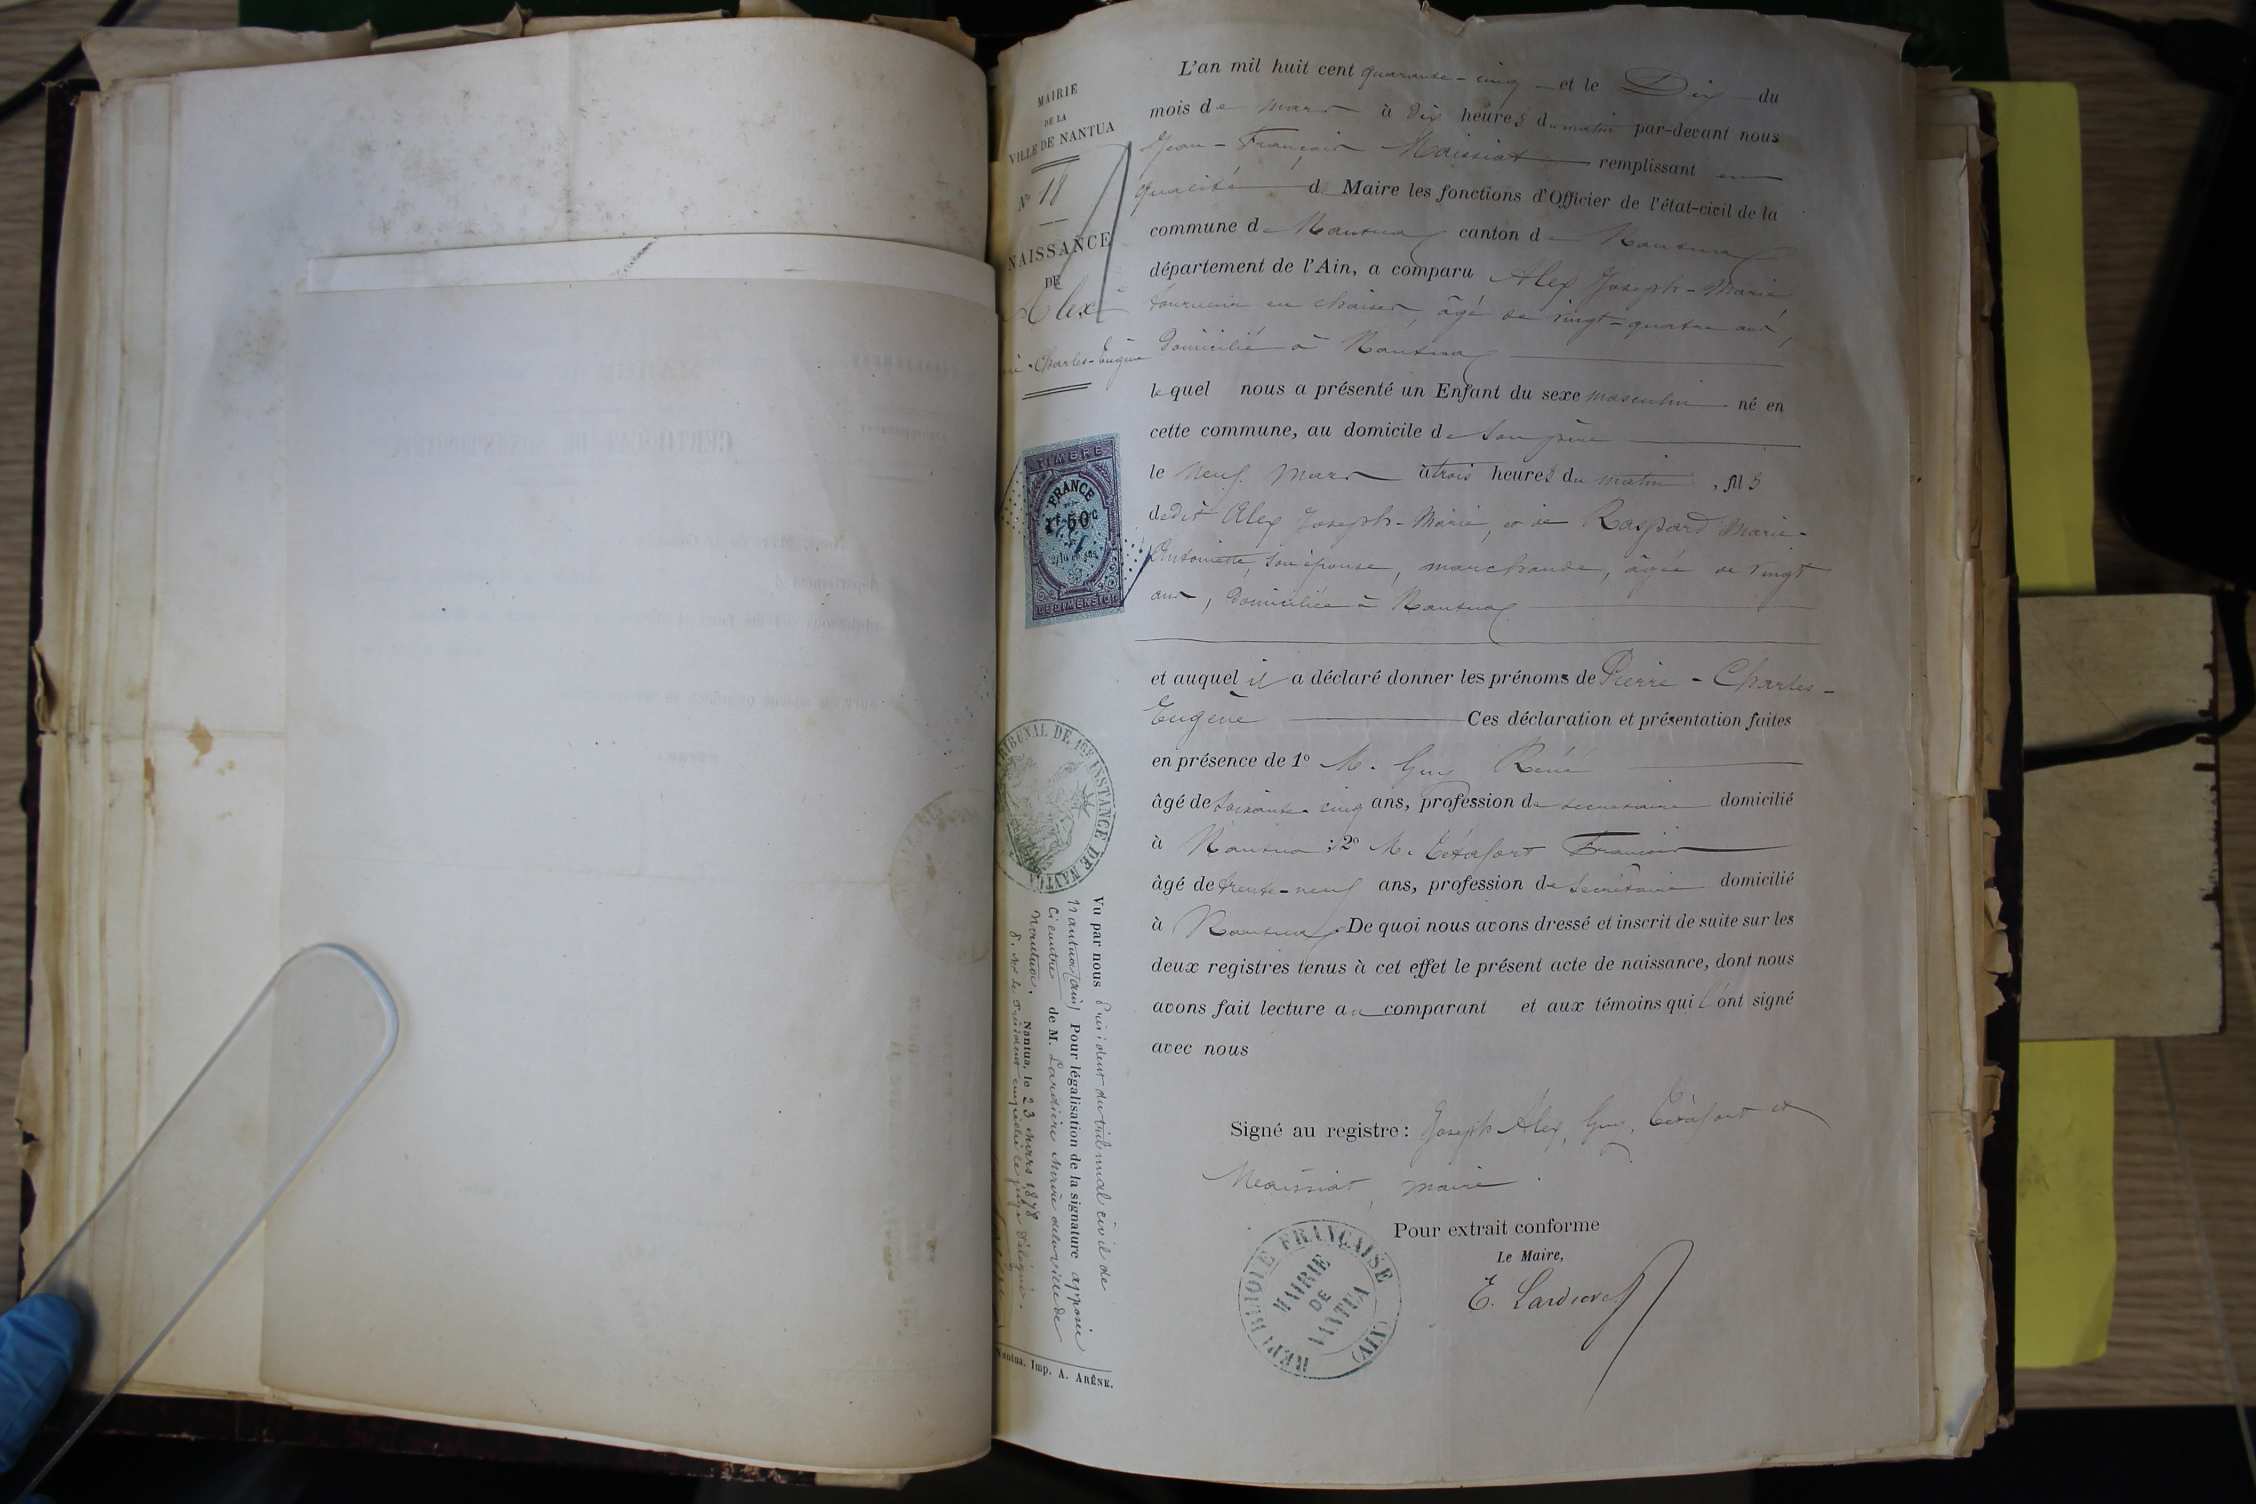 MAIRIE
DE LA
VILLE DE NANTUA
N° 18
NAISSANCE
DE
Alex
Charles-Eugène
TIMBRE
FRANCE
1F 50C
DE DIMENSION
TRIBUNAL DE 1ère INSTANCE DE NANTUA
Vu par nous Président du tribunal civil de
Nantua (ain) Pour légalisation de la signature apposée
Ci contre de M. Lardière Maire de la ville de
Nantua.
Nantua, le 23 Mars 1878
P. Mr le Président empêché le juge délégué.
Nantua. Imp. A. ARÈNE.
L'an mil huit cent quarante-cinq et le Dix du
mois de mars à dix heures du matin par-devant nous
Jean-François Maissiat remplissant en
qualité d Maire les fonctions d'Officier de l'état-civil de la
commune de Nantua canton de Nantua
département de l'Ain, a comparu Alex Joseph-Marie
tourneur en chaises, âgé de vingt-quatre ans,
domicilié à Nantua
lequel nous a présenté un Enfant du sexe masculin né en
cette commune, au domicile de son père
le neuf mars à trois heures du matin, fils
de dit Alex Joseph-Marie, et de Raspard Marie-
Antoinette, son épouse, marchande, âgée de vingt
ans, domiciliée à Nantua
et auquel il a déclaré donner les prénoms de Pierre-Charles-
Eugène Ces déclaration et présentation faites
en présence de 1° M. Guy René
âgé de soixante-cinq ans, profession de secrétaire domicilié
à Nantua ; 2° M. Tétafort François
âgé de trente-neuf ans, profession de secrétaire domicilié
à Nantua. De quoi nous avons dressé et inscrit de suite sur les
deux registres tenus à cet effet le présent acte de naissance, dont nous
avons fait lecture au comparant et aux témoins qui l'ont signé
avec nous
Signé au registre: Joseph Alex, Guy, Tétafort et
Maissiat, maire.
Pour extrait conforme
Le Maire,
RÉPUBLIQUE FRANÇAISE
MAIRIE
DE
NANTUA
(AIN)